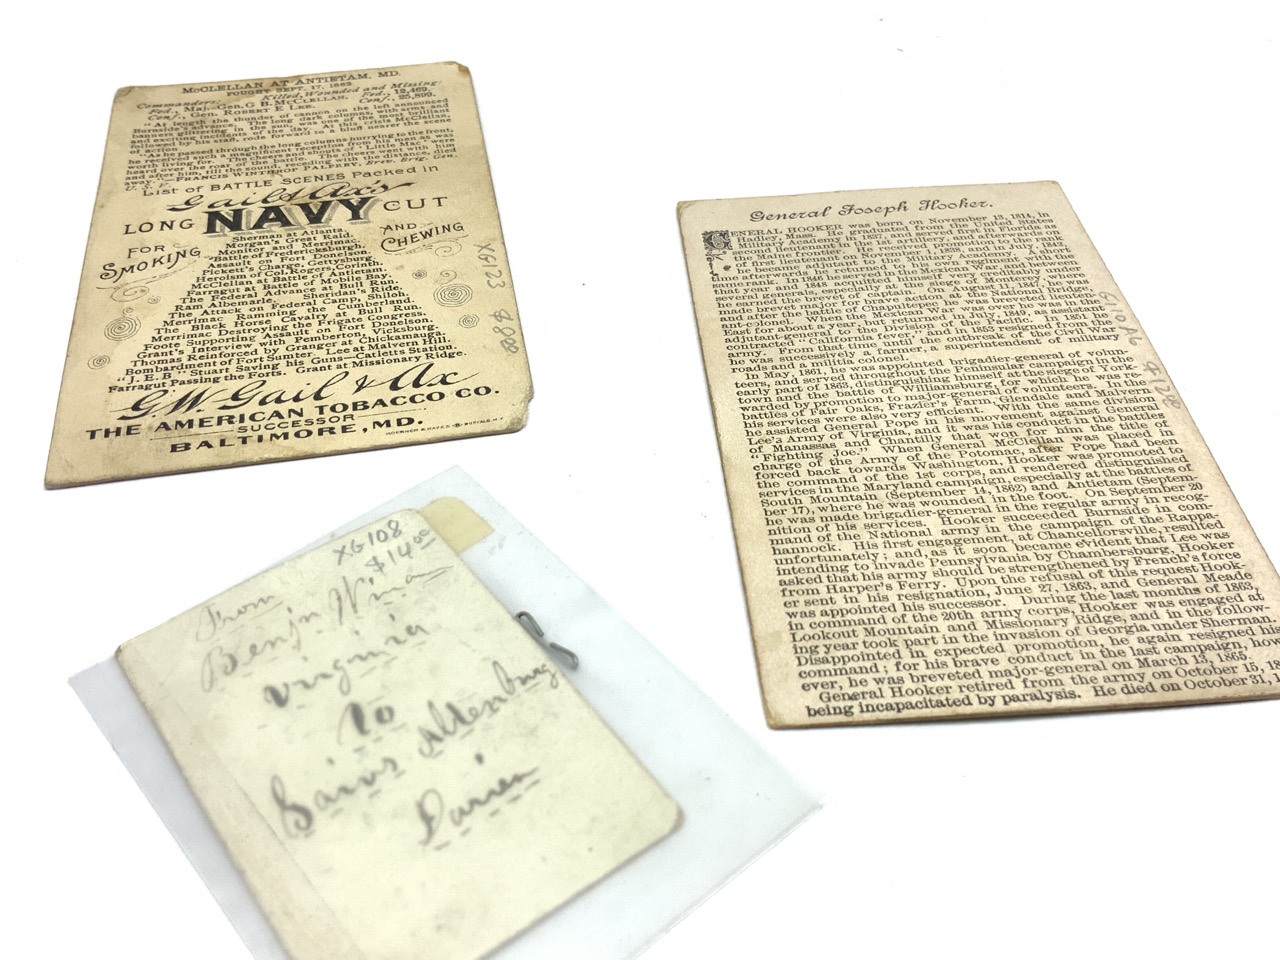 McCLELLAN AT ANTIETAM, MD.
FOUGHT SEPT. 17, 1862
Commanders: Killed, Wounded and Missing:
Fed., Maj.-Gen. G. B. McCLELLAN. Fed., 12,469.
Conf., Gen. ROBERT E. LEE. Conf., 25,899.
"At length the thunder of cannon on the left announced
Burnside's advance. The long dark columns, with arms and
banners glittering in the sun, was one of the most brilliant
and exciting incidents of the day. At this crisis McClellan,
followed by his staff, rode forward to a bluff nearer the scene
of action.
"As he passed through the long columns hurrying to the front,
he received such a magnificent reception from his men as was
worth living for. The cheers and shouts of 'Little Mac' were
heard over the roar of the battle. The cheers went with him
and after him, till the sound, receding with the distance, died
away."—FRANCIS WINTHROP PALFREY, Brev. Brig. Gen.
U. S. V.
List of BATTLE SCENES Packed in
Gail & Ax's
LONG NAVY CUT
FOR SMOKING AND CHEWING
Sherman at Atlanta.
Morgan's Great Raid.
Monitor and Merrimac.
Battle of Fredericksburgh.
Assault on Fort Donelson.
Pickett's Charge, Gettysburg.
Heroism of Col. Rogers, Corinth.
McClellan at Battle of Antietam.
Farragut at Battle of Mobile Bay.
The Federal Advance at Bull Run.
Ram Albemarle. Sheridan's Ride.
The Attack on Federal Camp, Shiloh.
Merrimac Ramming the Cumberland.
The Black Horse Cavalry at Bull Run.
Merrimac Destroying the Frigate Congress.
Foote Supporting Assault on Fort Donelson.
Grant's Interview with Pemberton, Vicksburg.
Thomas Reinforced by Granger at Chickamauga.
Bombardment of Fort Sumter. Lee at Malvern Hill.
"J. E. B." Stuart Saving his Guns—Catletts Station.
Farragut Passing the Forts. Grant at Missionary Ridge.
G. W. Gail & Ax
THE AMERICAN TOBACCO CO.
SUCCESSOR
BALTIMORE, MD.
XG123 $8.00
XG108
$14.00
From
Benj'n
Virginia
To
Altenburg
Darien
General Joseph Hooker.
GENERAL HOOKER was born on November 13, 1814, in
Hadley, Mass. He graduated from the United States
Military Academy in 1837, and served first in Florida as
second lieutenant in the 1st artillery, and afterwards on
the Maine frontier. He received promotion to the rank
of first lieutenant on November 3, 1838, and in July, 1843,
he became adjutant to the Military Academy. A short
time afterwards he returned to his own regiment, with the
same rank. In 1846 he served in the Mexican War, and between
that year and 1848 acquitted himself very creditably under
several generals, especially at the siege of Monterey, when
he earned the brevet of captain. On August 11, 1847, he was
made brevet major for brave action at the National Bridge,
and after the battle of Chapultepec he was breveted lieuten-
ant-colonel. When the Mexican War was over he was in the
East for about a year, but returned in July, 1849, as assistant
adjutant-general to the Division of the Pacific. In 1851 he
contracted "California fever," and in 1853 resigned from the
army. From that time until the outbreak of the Civil War
he was successively a farmer, a superintendent of military
roads and a militia colonel.
In May, 1861, he was appointed brigadier-general of volun-
teers, and served throughout the Peninsular campaign in the
early part of 1863, distinguishing himself at the siege of York-
town and the battle of Williamsburg, for which he was re-
warded by promotion to major-general of volunteers. In the
battles of Fair Oaks, Frazier's Farm, Glendale and Malvern
his services were also very efficient. With the same division
he assisted General Pope in his movements against General
Lee's Army of Virginia, and it was his conduct in the battles
of Manassas and Chantilly that won for him the title of
"Fighting Joe." When General McClellan was placed in
charge of the Army of the Potomac, after Pope had been
forced back towards Washington, Hooker was promoted to
the command of the 1st corps, and rendered distinguished
services in the Maryland campaign, especially at the battles of
South Mountain (September 14, 1862) and Antietam (Septem-
ber 17), where he was wounded in the foot. On September 20
he was made brigadier-general in the regular army in recog-
nition of his services. Hooker succeeded Burnside in com-
mand of the National army in the campaign of the Rappa-
hannock. His first engagement, at Chancellorsville, resulted
unfortunately; and, as it soon became evident that Lee was
intending to invade Pennsylvania by Chambersburg, Hooker
asked that his army should be strengthened by French's force
from Harper's Ferry. Upon the refusal of this request Hook-
er sent in his resignation, June 27, 1863, and General Meade
was appointed his successor. During the last months of 1863,
in command of the 20th army corps, Hooker was engaged at
Lookout Mountain and Missionary Ridge, and in the follow-
ing year took part in the invasion of Georgia under Sherman.
Disappointed in expected promotion, he again resigned his
command; for his brave conduct in the last campaign, how
ever, he was breveted major-general on March 13, 1865.
General Hooker retired from the army on October 15, 18
being incapacitated by paralysis. He died on October 31, 1